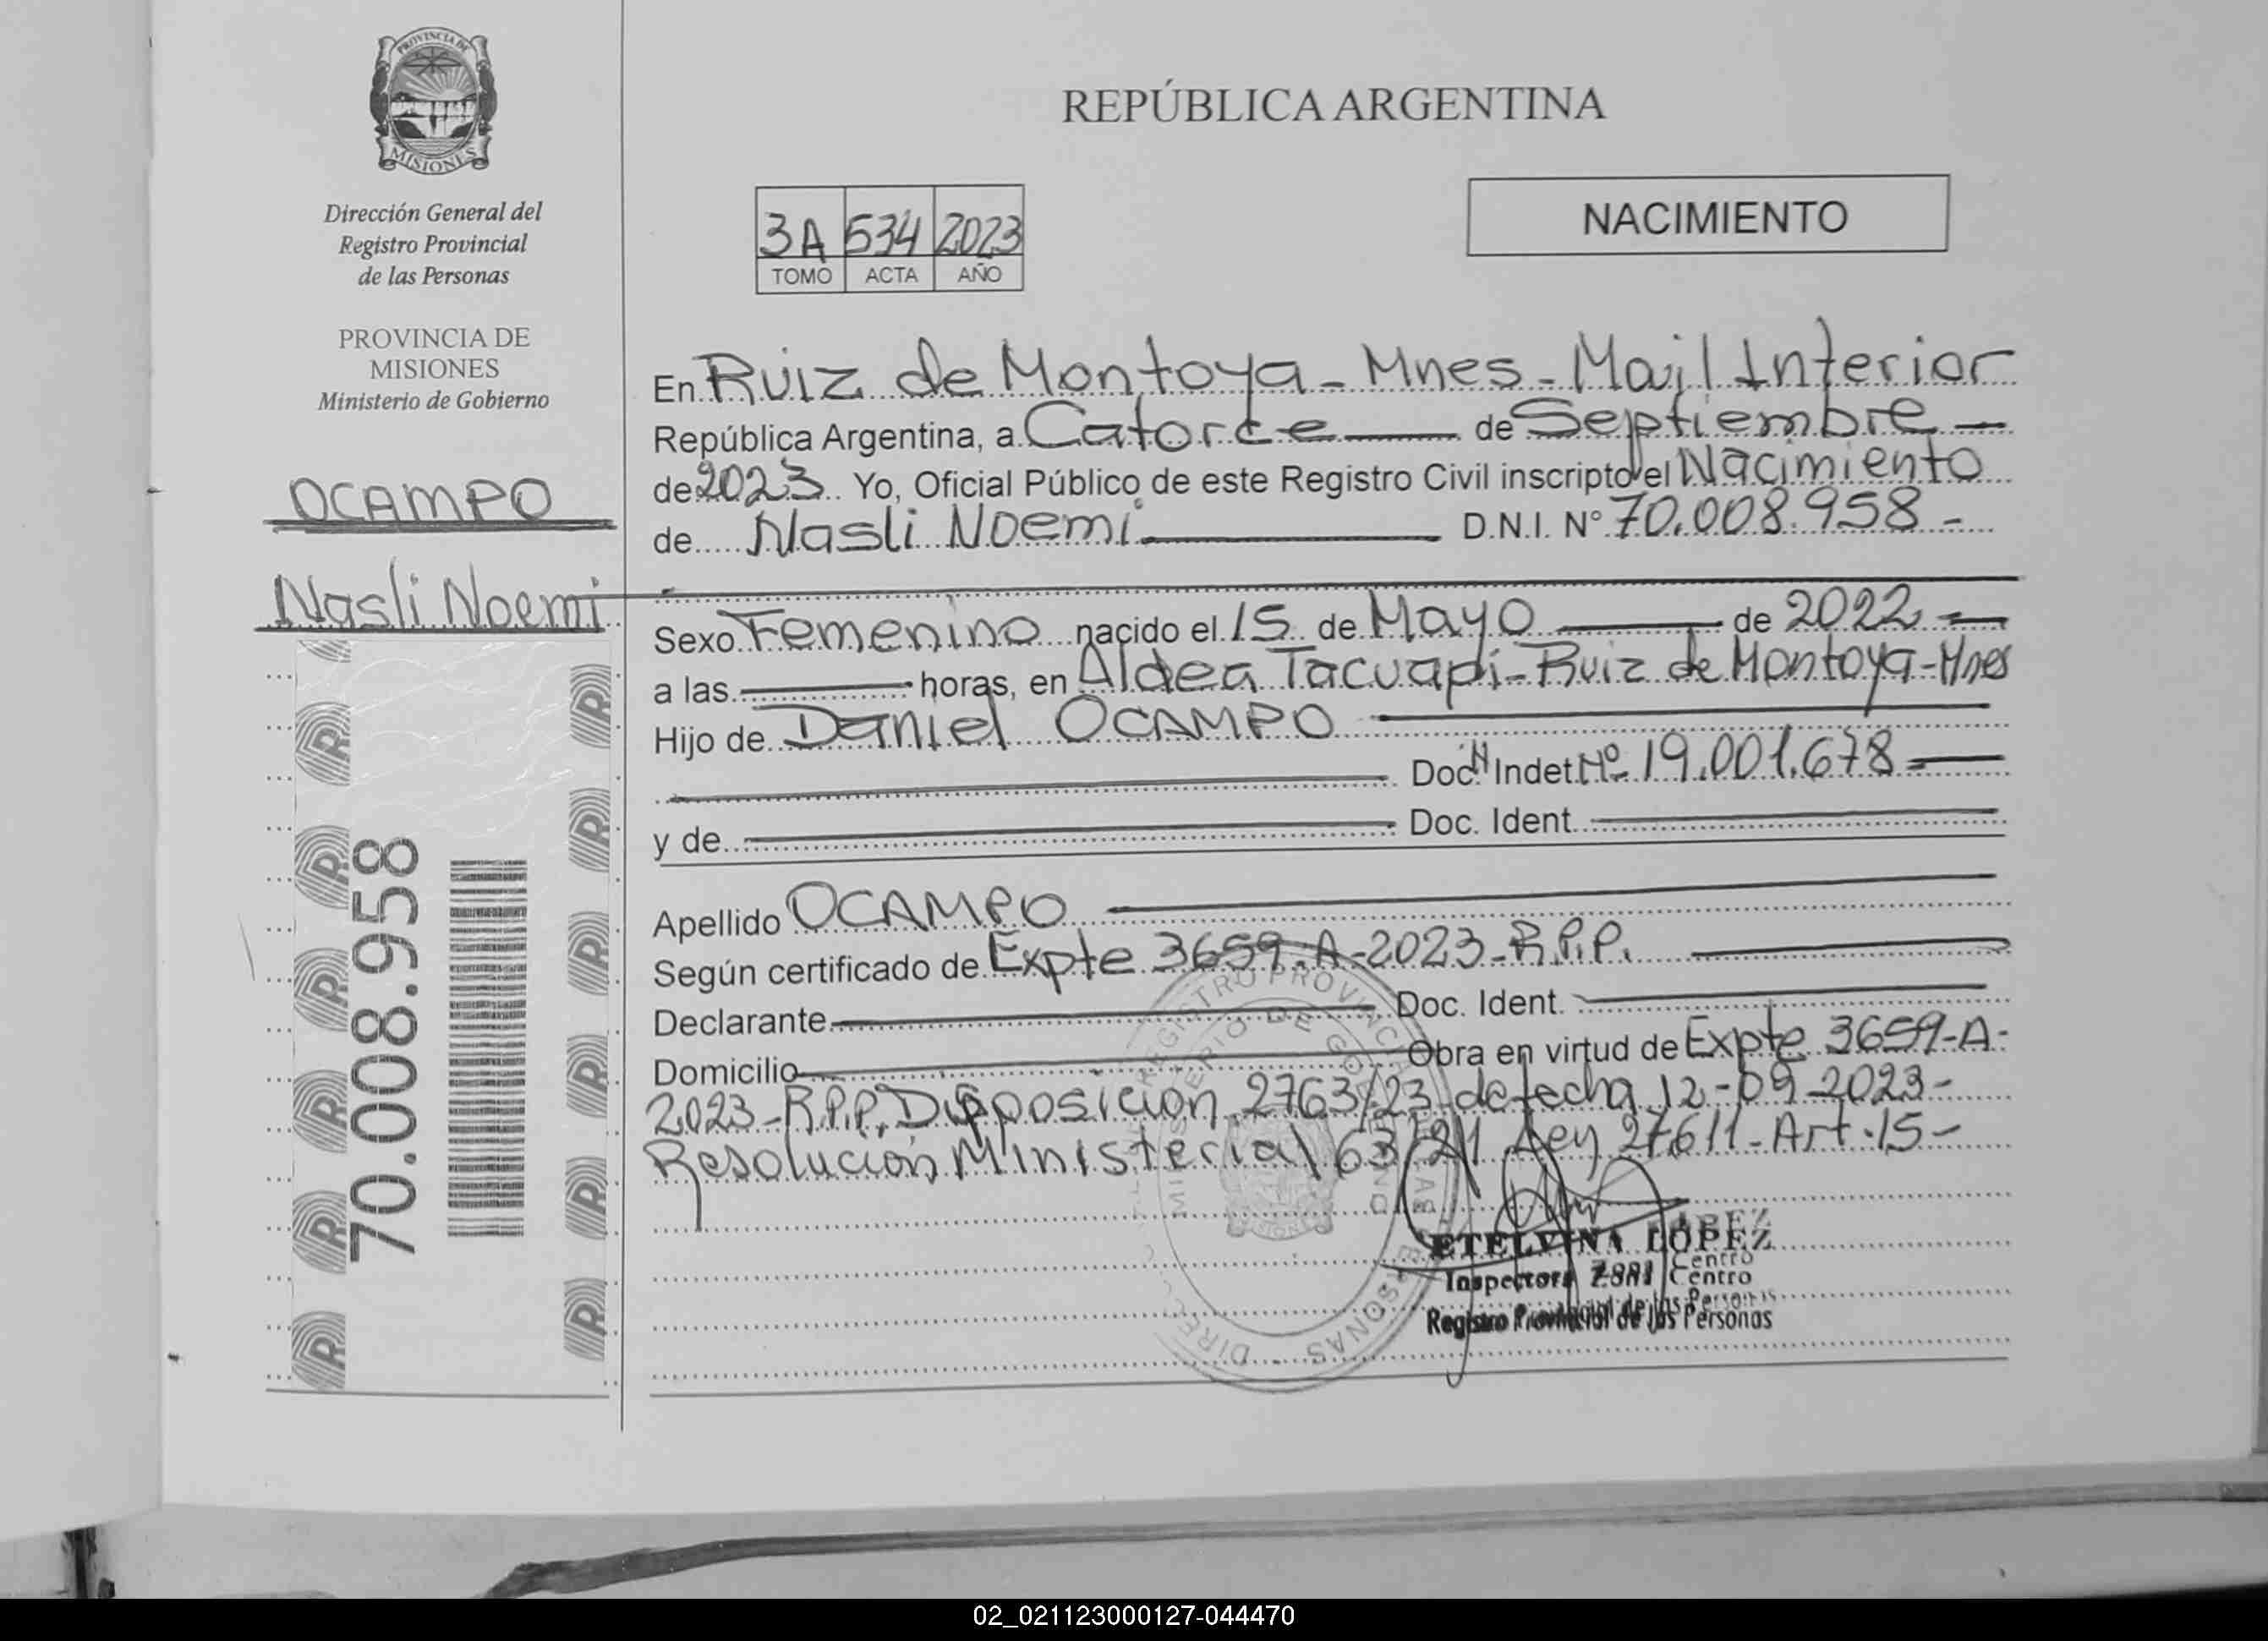 PROVINCIA DE
MISIONES
Dirección General del
Registro Provincial
de las Personas
PROVINCIA DE
MISIONES
Ministerio de Gobierno
OCAMPO
Nasli Noemi
70.008.958
REPÚBLICA ARGENTINA
3A 534 2023
TOMO ACTA AÑO
NACIMIENTO
En Ruiz de Montoya - Mnes - Movil Interior
República Argentina, a Catorce de Septiembre
de 2023 Yo, Oficial Público de este Registro Civil inscripto el Nacimiento
de Nasli Noemi D.N.I. N° 70.008.958 -
Sexo Femenino nacido el 15 de Mayo de 2022
a las horas, en Aldea Tacuapi - Ruiz de Montoya - Mnes
Hijo de Daniel OCAMPO
Doc. Indet. Nº 19.001.678
y de Doc. Ident.
Apellido OCAMPO
Según certificado de Expte 3659-A-2023-R.P.P.
Declarante Doc. Ident.
Domicilio Obra en virtud de Expte 3659-A-
2023-R.P.P. Disposición 2763/23 de fecha 12-09-2023-
Resolución Ministerial 63/21 Ley 27611-Art.15-
ETELVINA LÓPEZ
Inspectora Zona Centro
Registro Provincial de las Personas
02_021123000127-044470